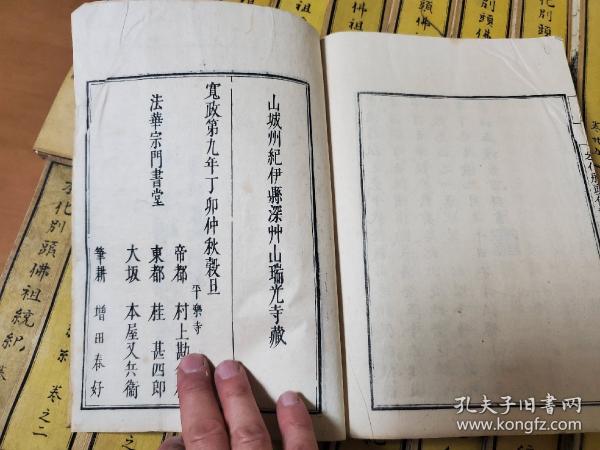 山城州紀伊縣深艸山瑞光寺藏
寬政第九年丁卯仲秋穀旦
法華宗門書堂
帝都 平樂寺 村上勘
東都 桂甚四郎
大坂 本屋又兵衛
筆耕 增田春好
化別頭佛祖統紀
卷之二
孔夫子旧書网
www.kongfz.com